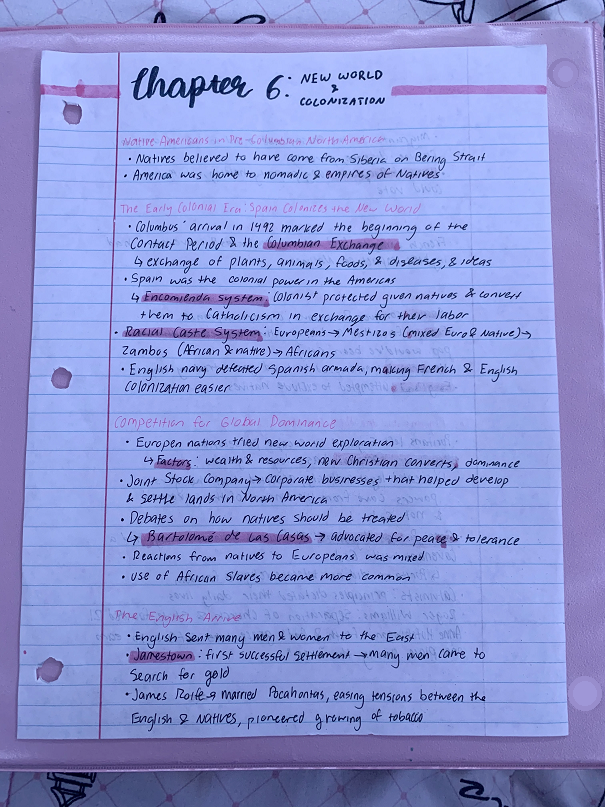 Chapter 6: NEW WORLD
&
COLONIZATION
Native Americans in Pre-Columbian North America
• Natives believed to have come from Siberia on Bering Strait
• America was home to nomadic & empires of Natives
The Early Colonial Era: Spain Colonizes the New World
• Columbus' arrival in 1492 marked the beginning of the
Contact Period & the Columbian Exchange
↳ exchange of plants, animals, foods, & diseases, & ideas
• Spain was the colonial power in the Americas
↳ Encomienda system: Colonist protected given natives & convert
them to Catholicism in exchange for their labor
• Racial Caste System: Europeans → Mestizos (mixed Euro & Native) →
Zambos (African & native) → Africans
• English navy defeated Spanish armada, making French & English
colonization easier
Competition for Global Dominance
• Europen nations tried new world exploration
↳ Factors: wealth & resources, new Christian converts, dominance
• Joint Stock Company → corporate businesses that helped develop
& settle lands in North America
• Debates on how natives should be treated
↳ Bartolomé de Las Casas → advocated for peace & tolerance
• Reactions from natives to Europeans was mixed
• use of African Slaves became more common
The English Arrive
• English sent many men & women to the East
• Jamestown: first successful settlement → many men came to
search for gold
• James Rolfe → married Pocahontas, easing tensions between the
English & Natives, pioneered growing of tobacco